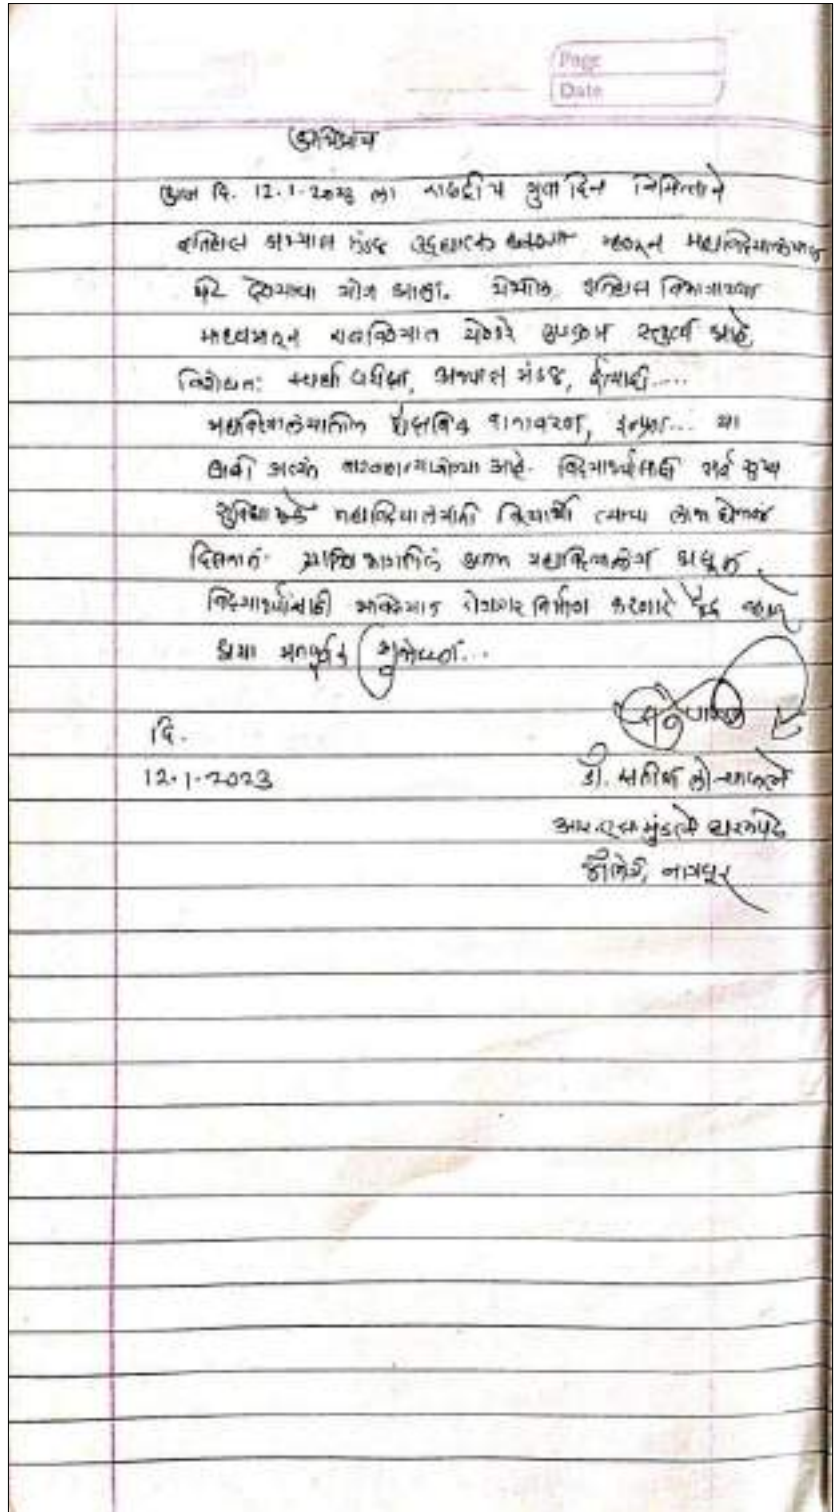 Page
Date
अभिप्राय
आज दि. 12.1.2023 ला राष्ट्रीय युवा दिन निमित्ताने
इतिहास अभ्यास मंडळ उद्घाटक म्हणून महाविद्यालयास
भेट देण्याचा योग आला. येथील इतिहास विभागाच्या
माध्यमातून राबविण्यात येणारे उपक्रम स्तुत्य आहे,
विशेषत: स्पर्धा परीक्षा, अभ्यास मंडळ, ईत्यादी.....
महाविद्यालयातील शैक्षणिक वातावरण, इमारत... या
बाबी अत्यंत आहे. विद्यार्थ्यांसाठी सर्व सुख
सुविधा महाविद्यालयाची विद्यार्थी त्याचा लाभ घेतांना
दिसतात. ग्रामिण भागातील महाविद्यालय असून
विद्यार्थ्यांसाठी भविष्यात रोजगार निर्माण करणारे केंद्र
अशा मनपूर्वक शुभेच्छा...
दि.
12.1.2023
डॉ. सतीश
धरमपेठ
कॉलेज, नागपूर